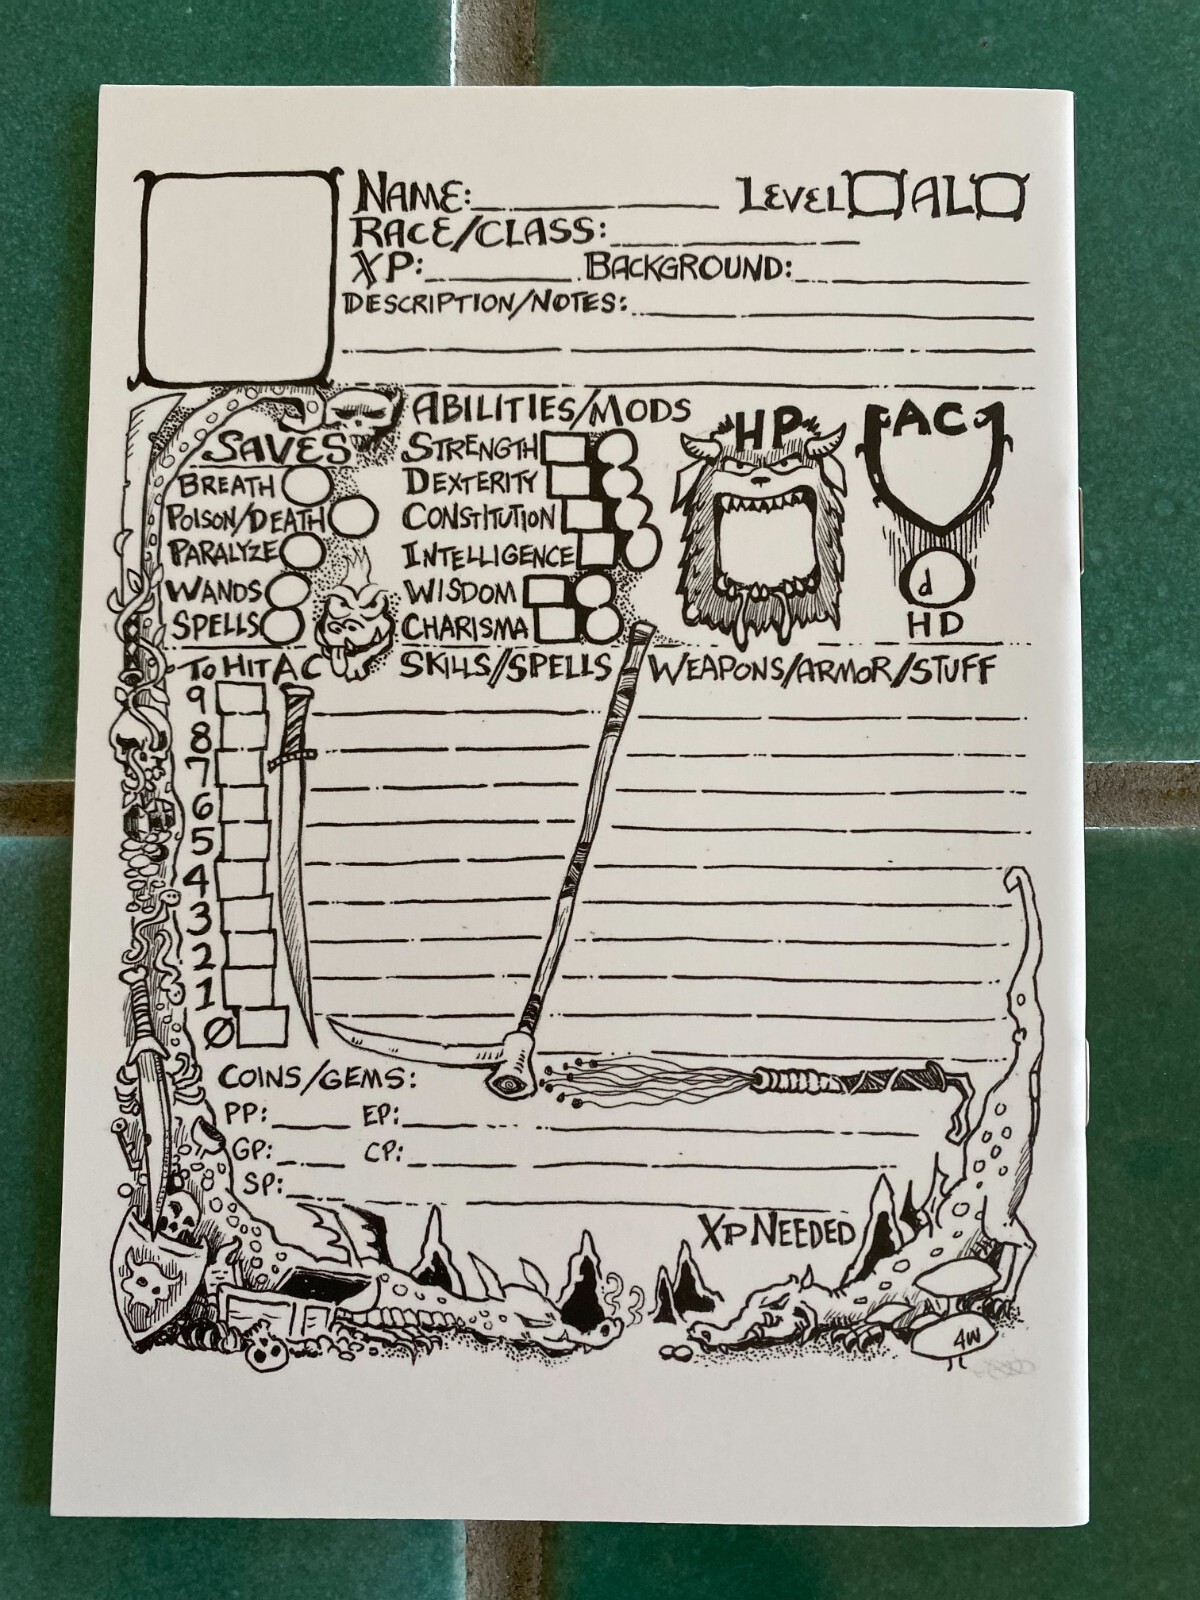 NAME: LEVEL AL
RACE/CLASS:
XP: BACKGROUND:
DESCRIPTION/NOTES:
ABILITIES/MODS
HP
AC
SAVES
STRENGTH
BREATH
DEXTERITY
POISON/DEATH
CONSTITUTION
PARALYZE
INTELLIGENCE
WANDS
WISDOM
SPELLS
CHARISMA
d
HD
TO HIT AC
SKILLS/SPELLS
WEAPONS/ARMOR/STUFF
9
8
7
6
5
4
3
2
1
Ø
COINS/GEMS:
PP: EP:
GP: CP:
SP:
XP NEEDED
4W